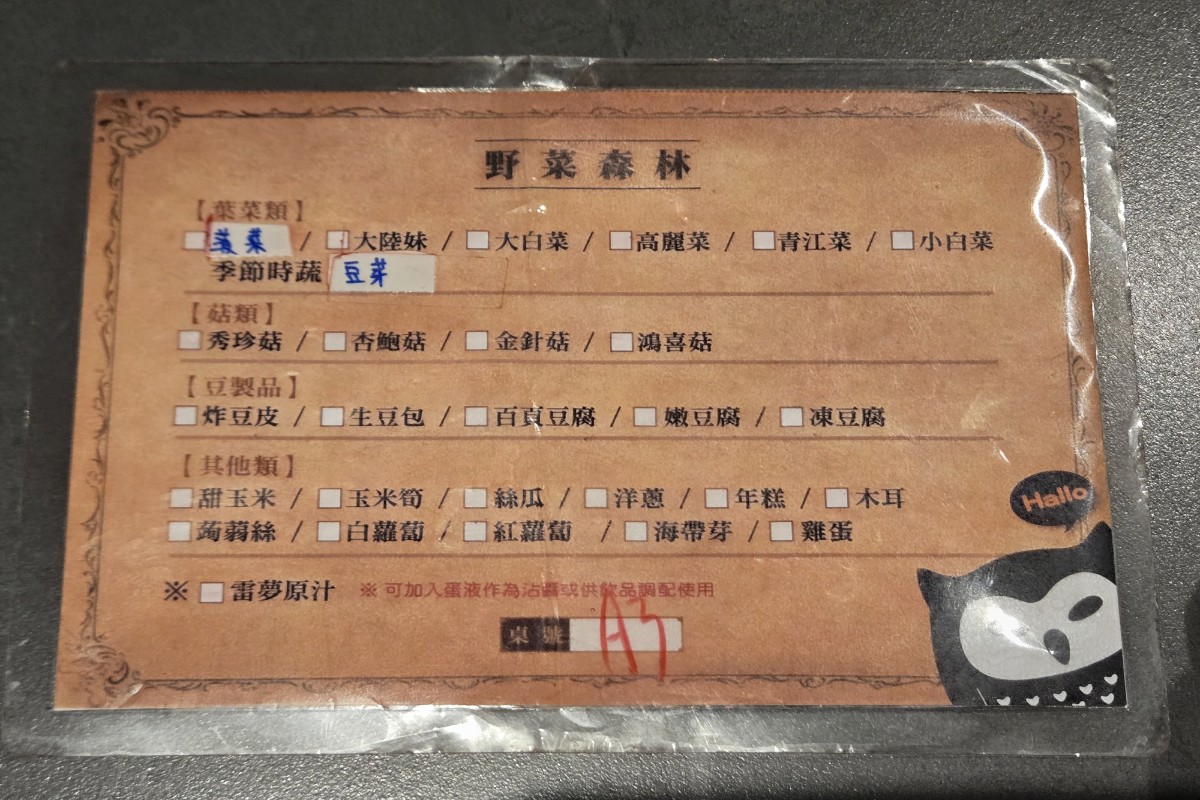 野菜森林
【葉菜類】
□菠菜 / □大陸妹 / □大白菜 / □高麗菜 / □青江菜 / □小白菜
季節時蔬 豆芽
【菇類】
□秀珍菇 / □杏鮑菇 / □金針菇 / □鴻喜菇
【豆製品】
□炸豆皮 / □生豆包 / □百頁豆腐 / □嫩豆腐 / □凍豆腐
【其他類】
□甜玉米 / □玉米筍 / □絲瓜 / □洋蔥 / □年糕 / □木耳
□蒟蒻絲 / □白蘿蔔 / □紅蘿蔔 / □海帶芽 / □雞蛋
Hallo
※ □雷夢原汁 ※ 可加入蛋液作為沾醬或供飲品調配使用
桌號 A3